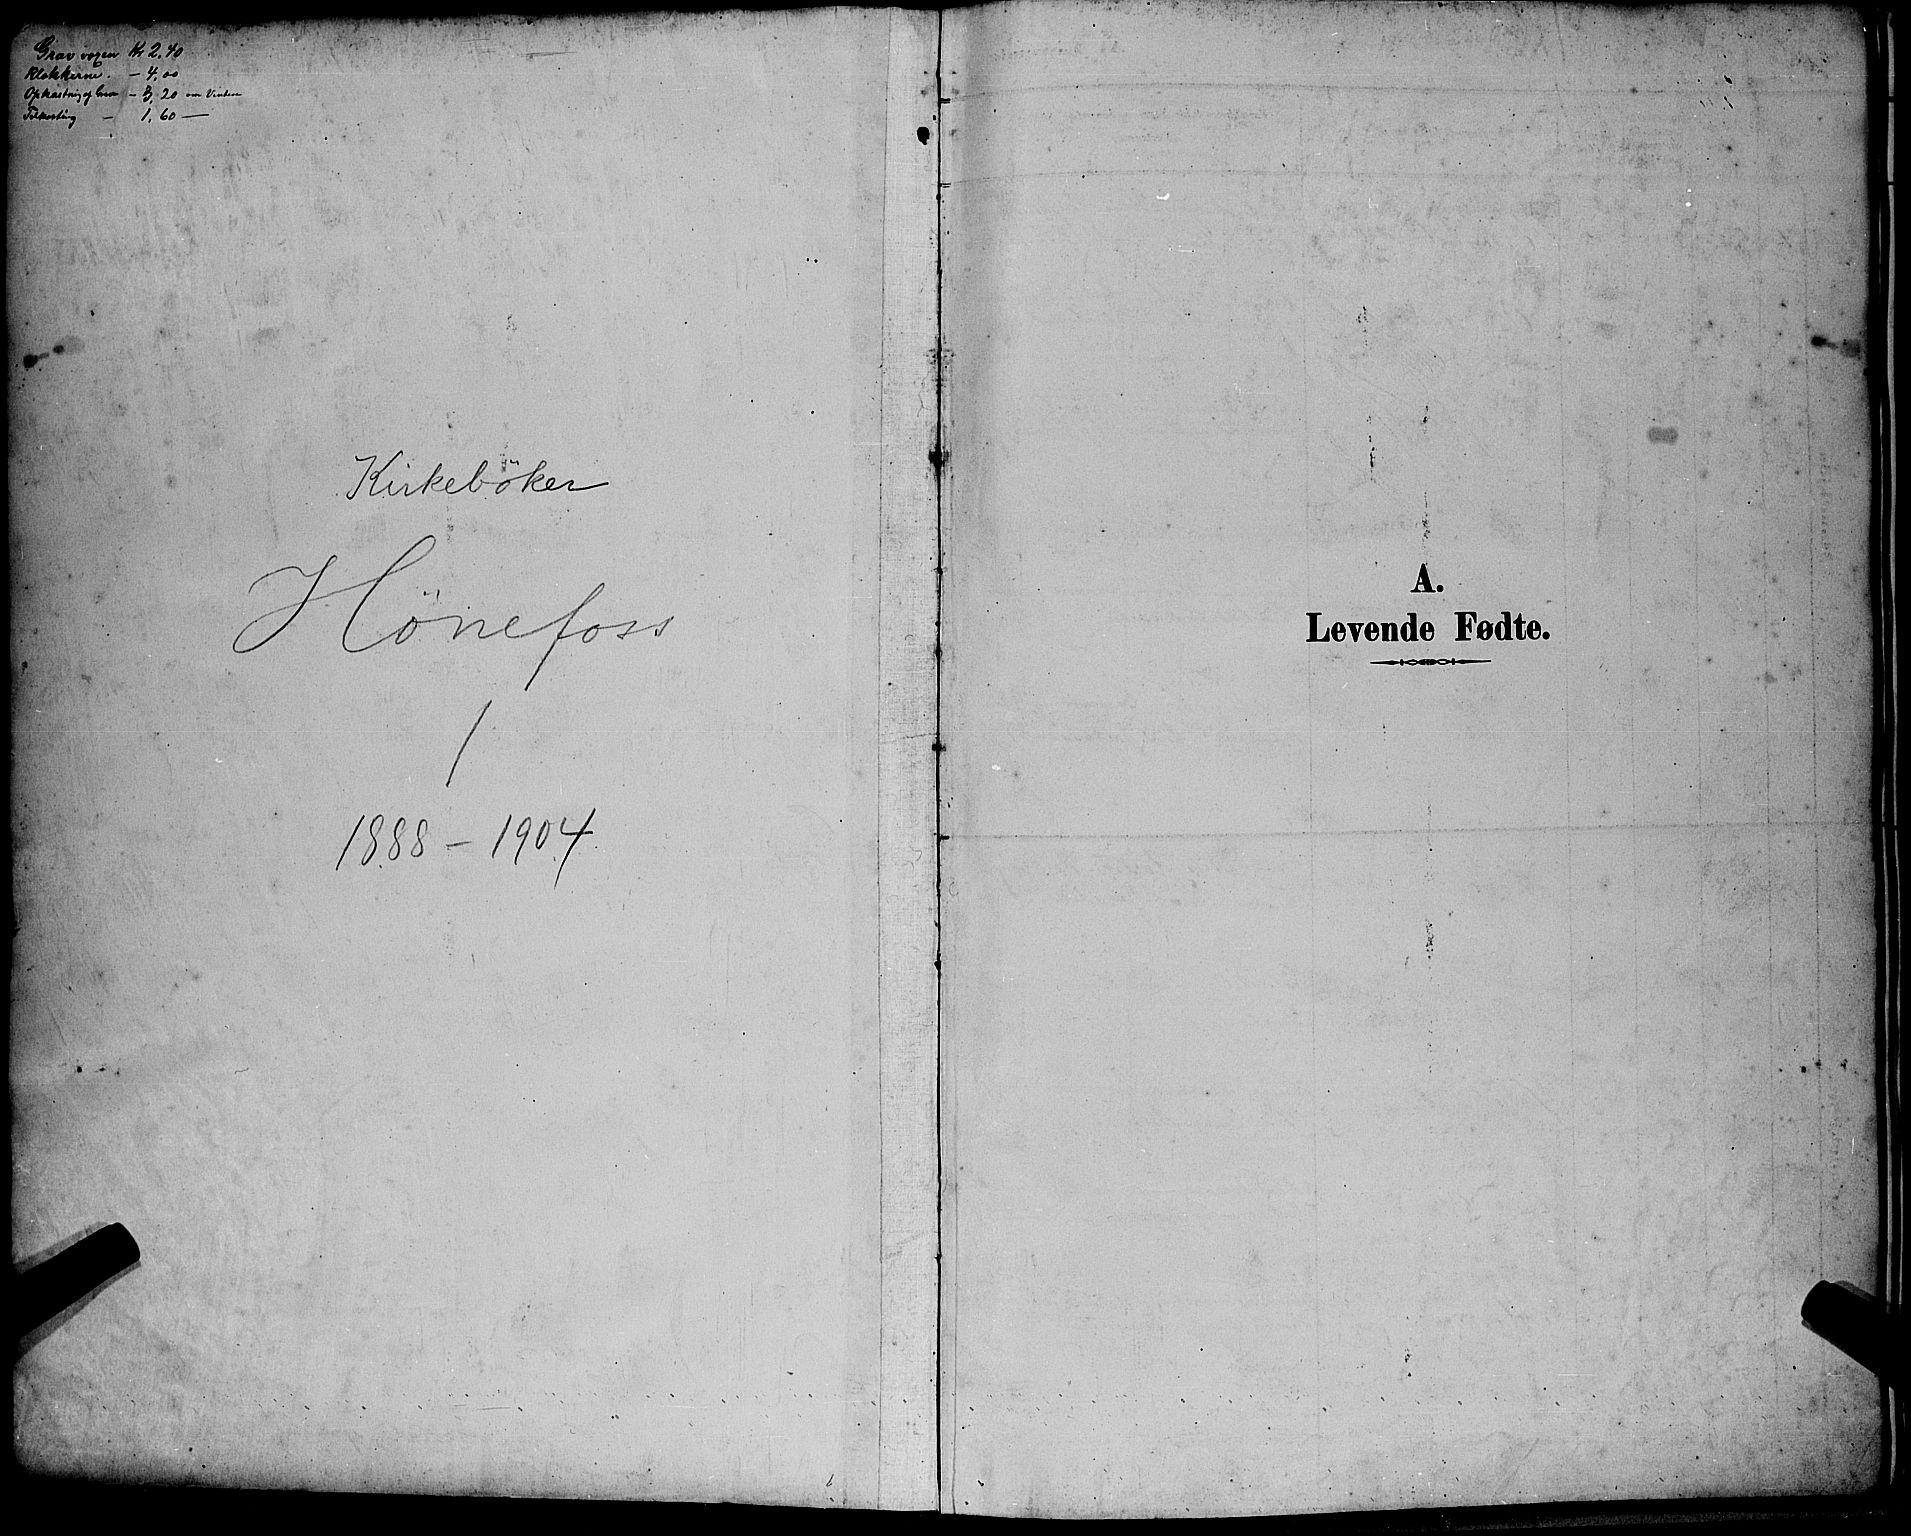 Grav vogen Kr 2,40
Klokkerne. — 4,00
Opkastning af Grav — 3,20 om Vintern
Tilkasting — 1,60 —
Kirkeböker
Hönefoss
1
1888 – 1904
A.
Levende Fødte.